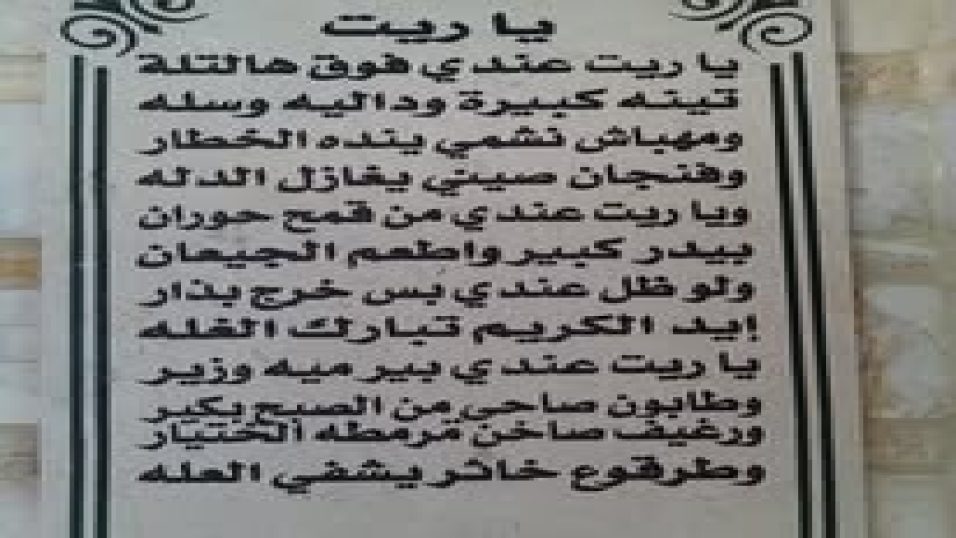 يا ريت
يا ريت عندي فوق هالتلة
تينه كبيرة وداليه وسله
ومهباش نشمي ينده الخطار
وفنجان صيني يغازل الدله
ويا ريت عندي من قمح حوران
بيدر كبير واطعم الجيعان
ولو ظل عندي بس خرج بذار
إيد الكريم تبارك الغله
يا ريت عندي بير ميه وزير
وطابون صاحي من الصبح بكير
ورغيف صاخن مرمطه الختيار
وطرقوع خاثر يشفي العله